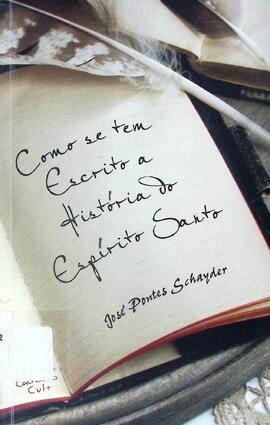 Como se tem
Escrito a
História do
Espírito Santo
José Pontes Schayder
Cult